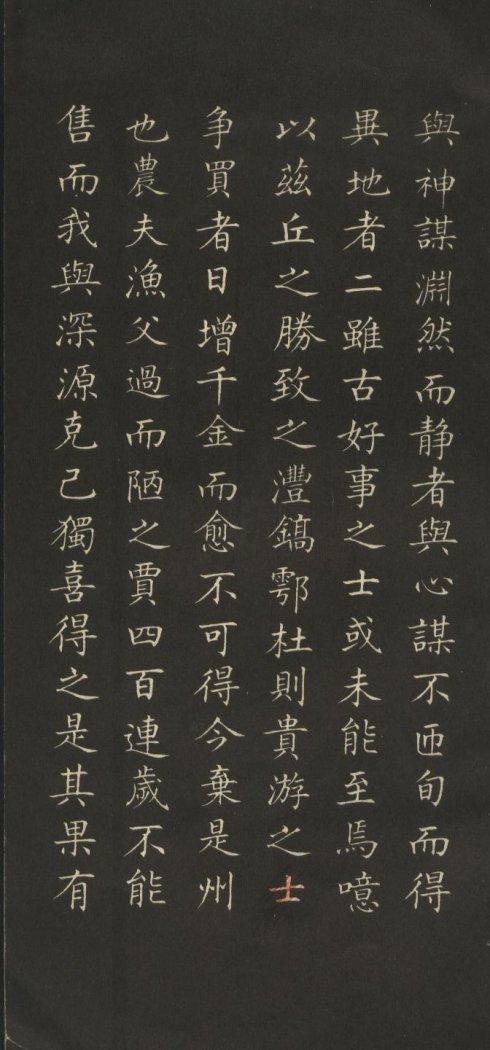 與神謀淵然而静者與心謀不匝旬而得
異地者二雖古好事之士或未能至焉噫
以兹丘之勝致之灃鎬鄠杜則貴游之士
争買者日增千金而愈不可得今棄是州
也農夫漁父過而陋之賈四百連歲不能
售而我與深源克己獨喜得之是其果有